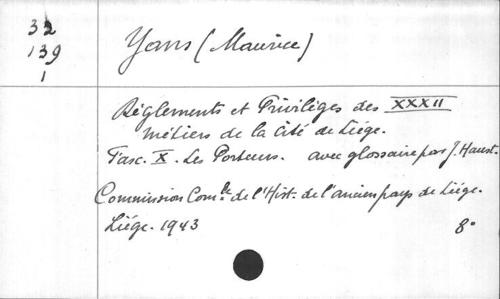 32
139
1
Yans (Maurice)
Règlements et Privilèges des XXXII
métiers de la Cité de Liége.
Fasc. X. Les Porteurs. avec glossaire par J. Haust.
Commission Comle de l'Hist. de l'ancien pays de Liége.
Liége. 1943
8°